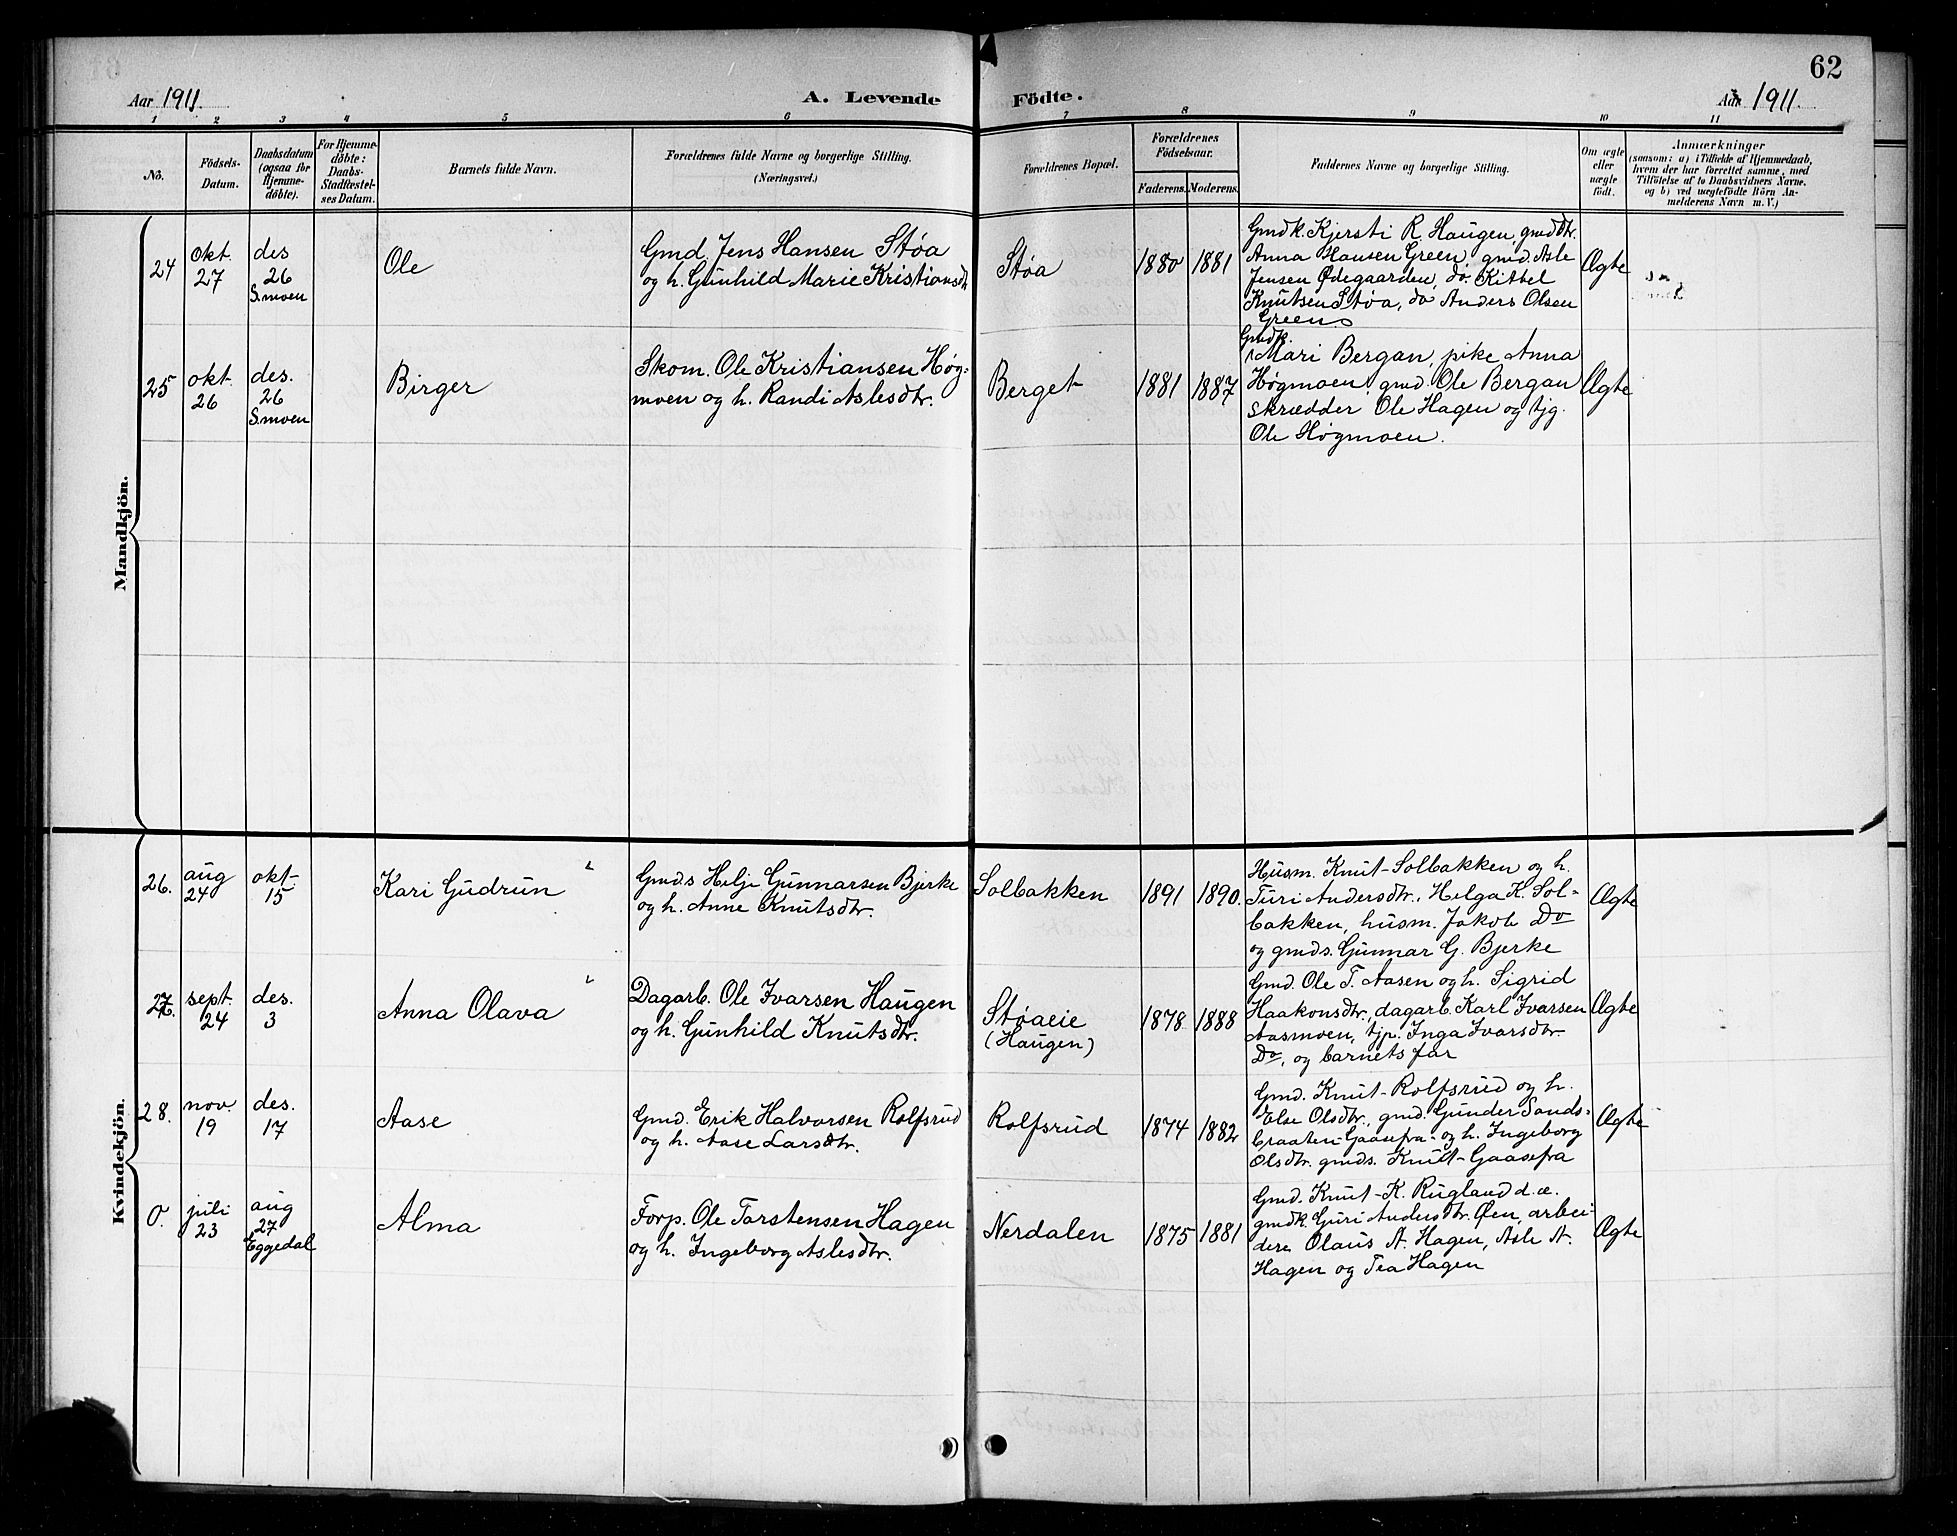 62
Aar 1911.
A. Levende Födte.
Aar 1911.
1 2 3 4 5 6 7 8 9 10 11
No.
Födsels-
Datum.
Daabsdatum
(ogsaa for
Hjemme-
döbte).
For Hjemme-
döbte:
Daabs-
Stadfæstel-
ses Datum.
Barnets fulde Navn.
Forældrenes fulde Navne og borgerlige Stilling.
(Næringsvei.)
Forældrenes Bopæl.
Forældrenes
Födselsaar.
Faderens.
Moderens.
Faddernes Navne og borgerlige Stilling.
Om ægte
eller
uægte
födt.
Anmærkninger
(saasom: a) i Tilfælde af Hjemmedaab,
hvem der har forrettet samme, med
Tilföielse af to Daabsvidners Navne.
og b) ved uægtefödte Börn An-
melderens Navn m. V.)
Mandkjön.
24
okt.
27
des
26
S.moen
Ole
Gmd. Jens Hansen Støa
og h. Gunhild Marie Kristiansdtr
Støa
1880
1881
Gmdk. Kjersti R. Haugen, gmddtr.
Anna Hansen Green, gmd. Asle
Jensen Ødegaarden, do. Kittel
Knutsen Støa, do Anders Olsen
Green
Ægte
25
okt.
26
des.
26
S.moen
Birger
Skom. Ole Kristiansen Høg-
moen og h. Randi Aslesdtr.
Berget
1881
1887
Gmdk.
Mari Bergan, pike Anna
Høgmoen, gmd. Ole Bergan
skrædder Ole Hagen og tjg.
Ole Høgmoen.
Ægte
Kvindekjön.
26.
aug
24
okt.
15
Kari Gudrun
Gmds Helje Gunnarsen Bjerke
og h. Anne Knutsdtr.
Solbakken
1891
1890.
Husm. Knut Solbakken og h.
Turi Andersdtr., Helga K. Sol-
bakken, husm. Jakob Do
og gmds. Gunnar G. Bjerke
Ægte
27.
sept.
24
des.
3
Anna Olava
Dagarb. Ole Ivarsen Haugen
og h. Gunhild Knutsdtr.
Støaeie
(Haugen)
1878
1888
Gmd. Ole T. Aasen og h. Sigrid
Haakonsdtr., dagarb. Karl Ivarsen
Aasmoen, tjp. Inga Ivarsdtr.
Do, og barnets far
Ægte
28.
nov.
19
des.
17
Aase
Gmd. Erik Halvorsen Rolfsrud
og h. Aase Larsdtr.
Rolfsrud
1874
1882
Gmd. Knut Rolfsrud og h.
Else Olsdtr., gmd. Gunder Sands-
braaten Gaasefra og h. Ingeborg
Olsdtr. gmds. Knut Gaasefra
Ægte
0.
juli
23
aug
27
Eggedal
Alma
Forp. Ole Torstensen Hagen
og h. Ingeborg Aslesdtr.
Nerdalen
1875
1881
Gmd. Knut K. Rugland d. æ.
gmdk. Guri Andersdtr. Øen, arbei-
dere Olaus A. Hagen, Asle A.
Hagen og Tea Hagen
Ægte